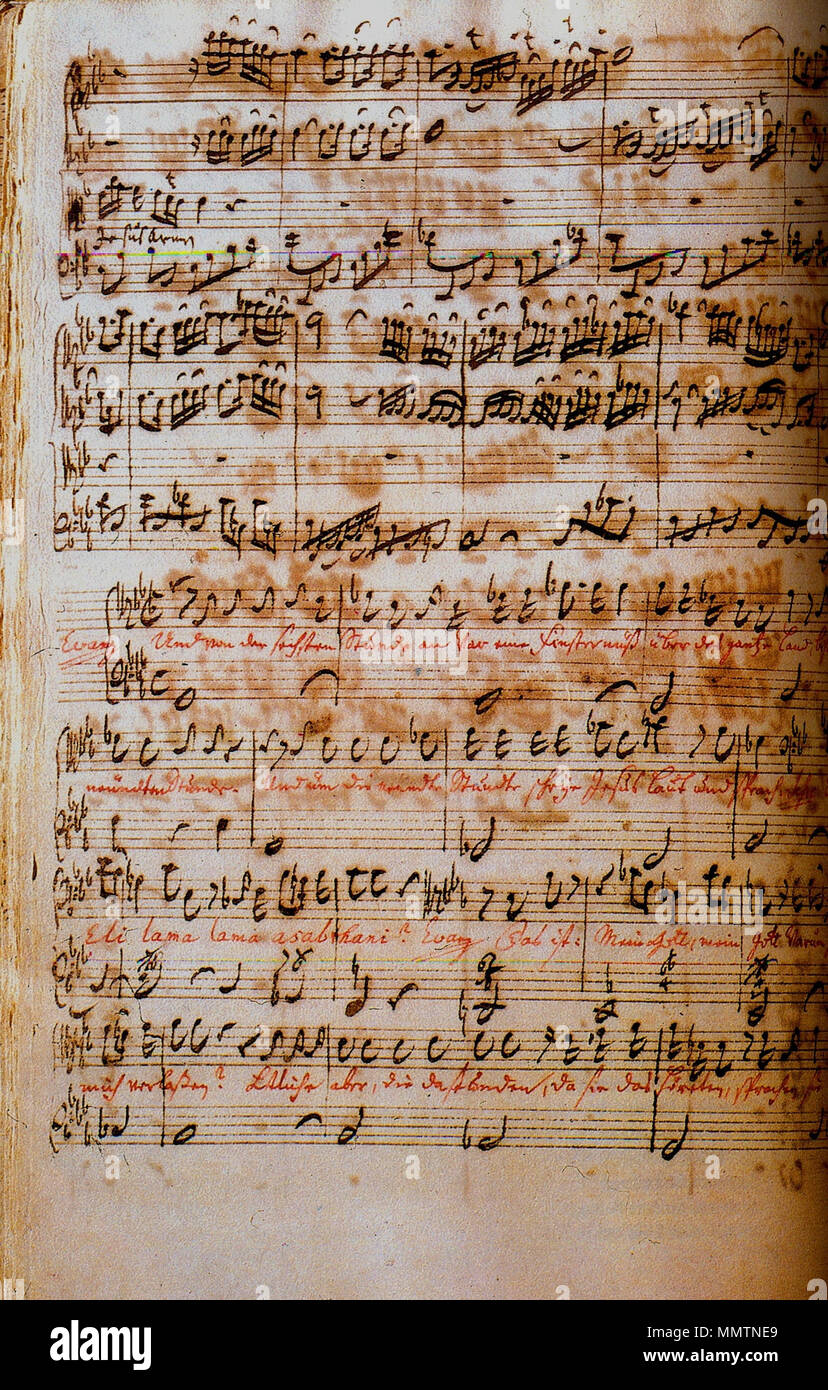 Jesus Armen
Evang Und von der sechsten Stunde an war eine Finsternuß über das gantze Land
neündten Stunde. Und um die neundte Stunde schrye Jesus laut und sprach
Eli lama lama asabthani? Evang Das ist: Mein Gott, mein Gott Warum
mich verlaßen? Etliche aber, die da stunden, da sie das höreten, sprachen
alamy
alamy
Image ID: MMTNE9
www.alamy.com